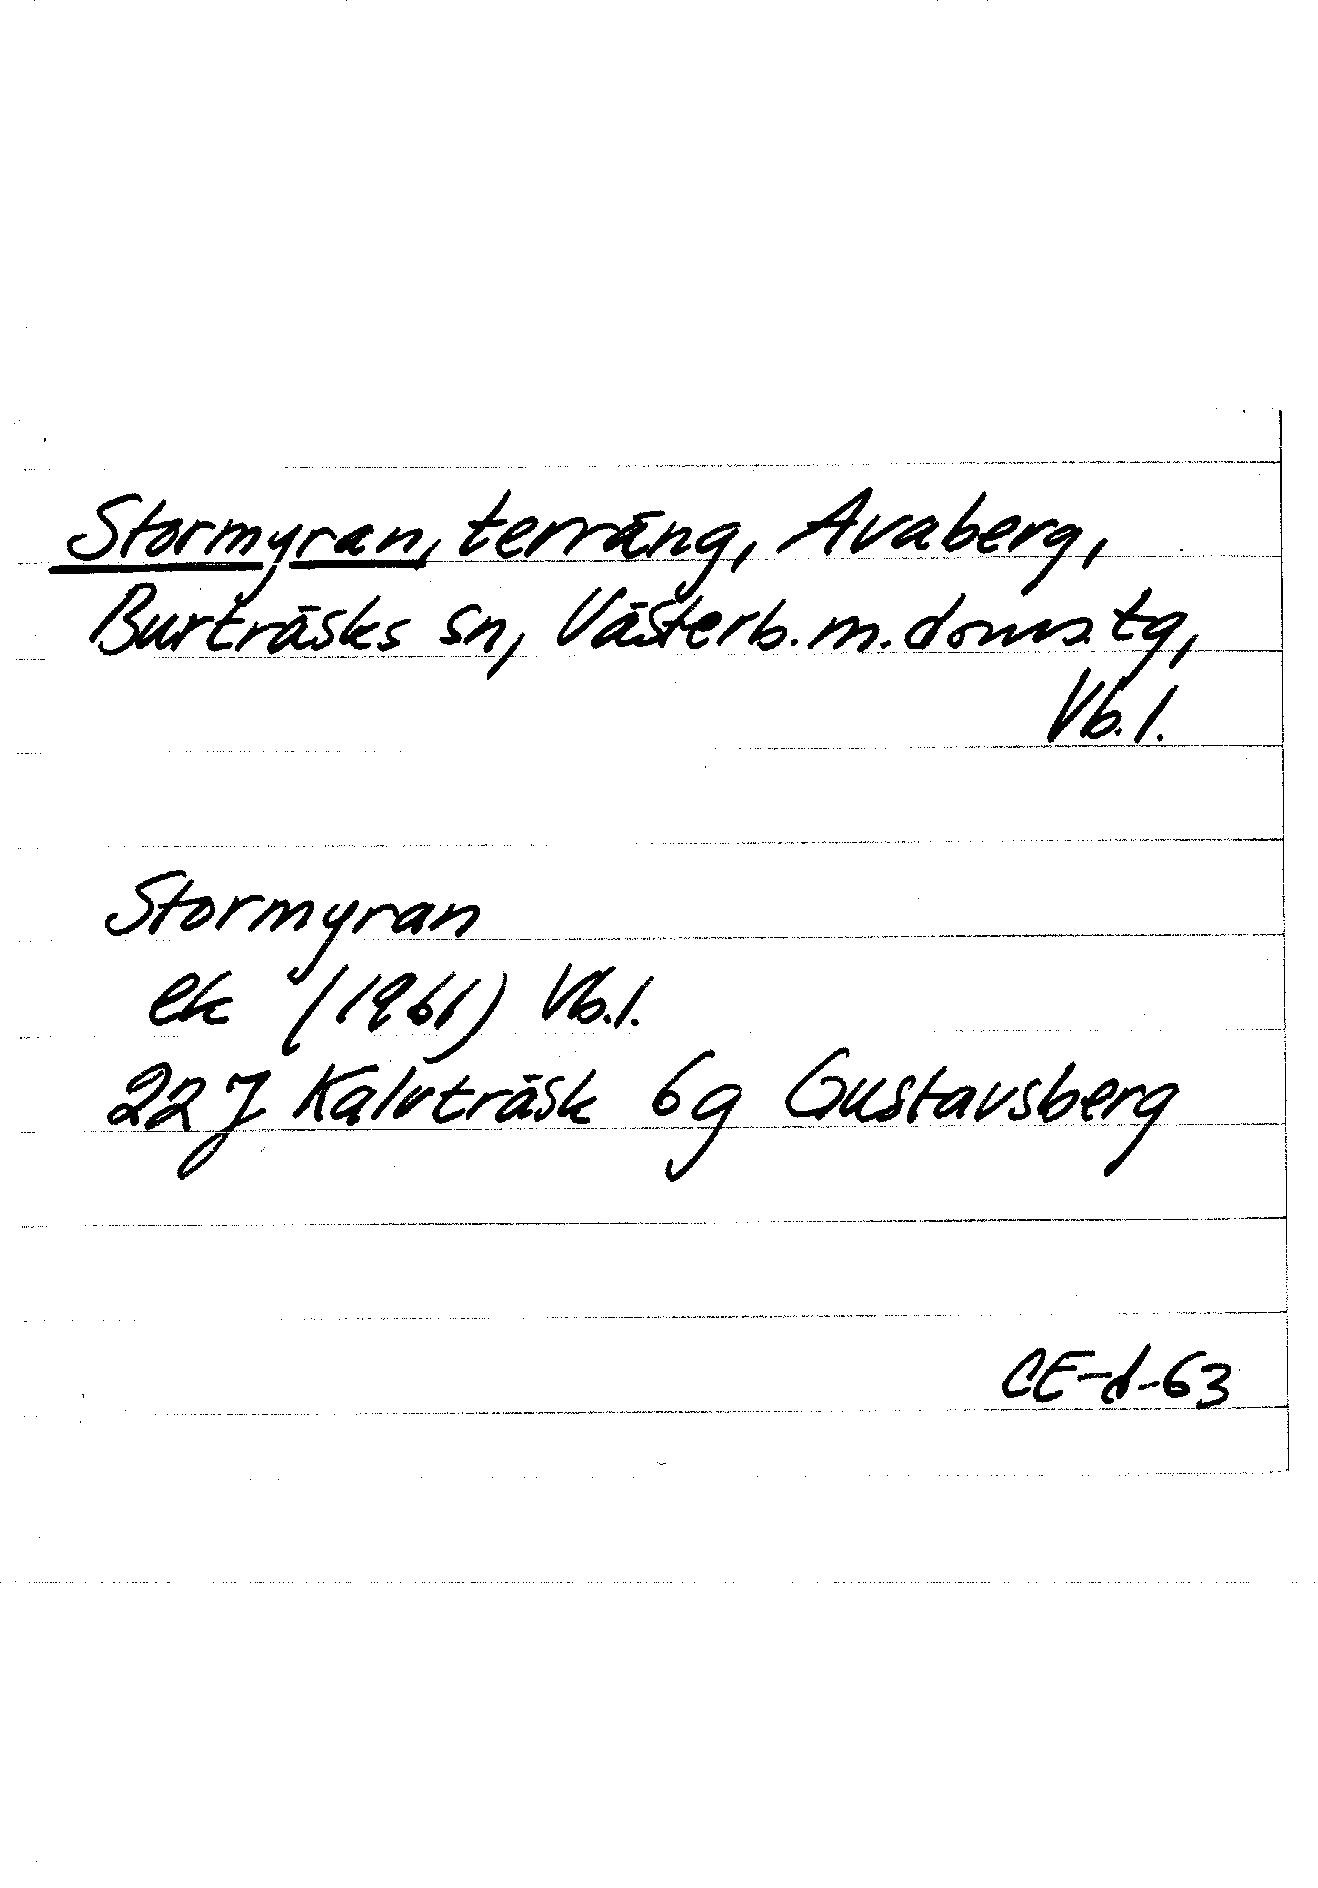 Stormyran, terräng, Avaberg,
Burträsks sn, Västerb. m. doms. tg,
Vb. l.
Stormyran
ek (1961) Vb. l.
22 J Kalvträsk 6g Gustavsberg
CE-d-63